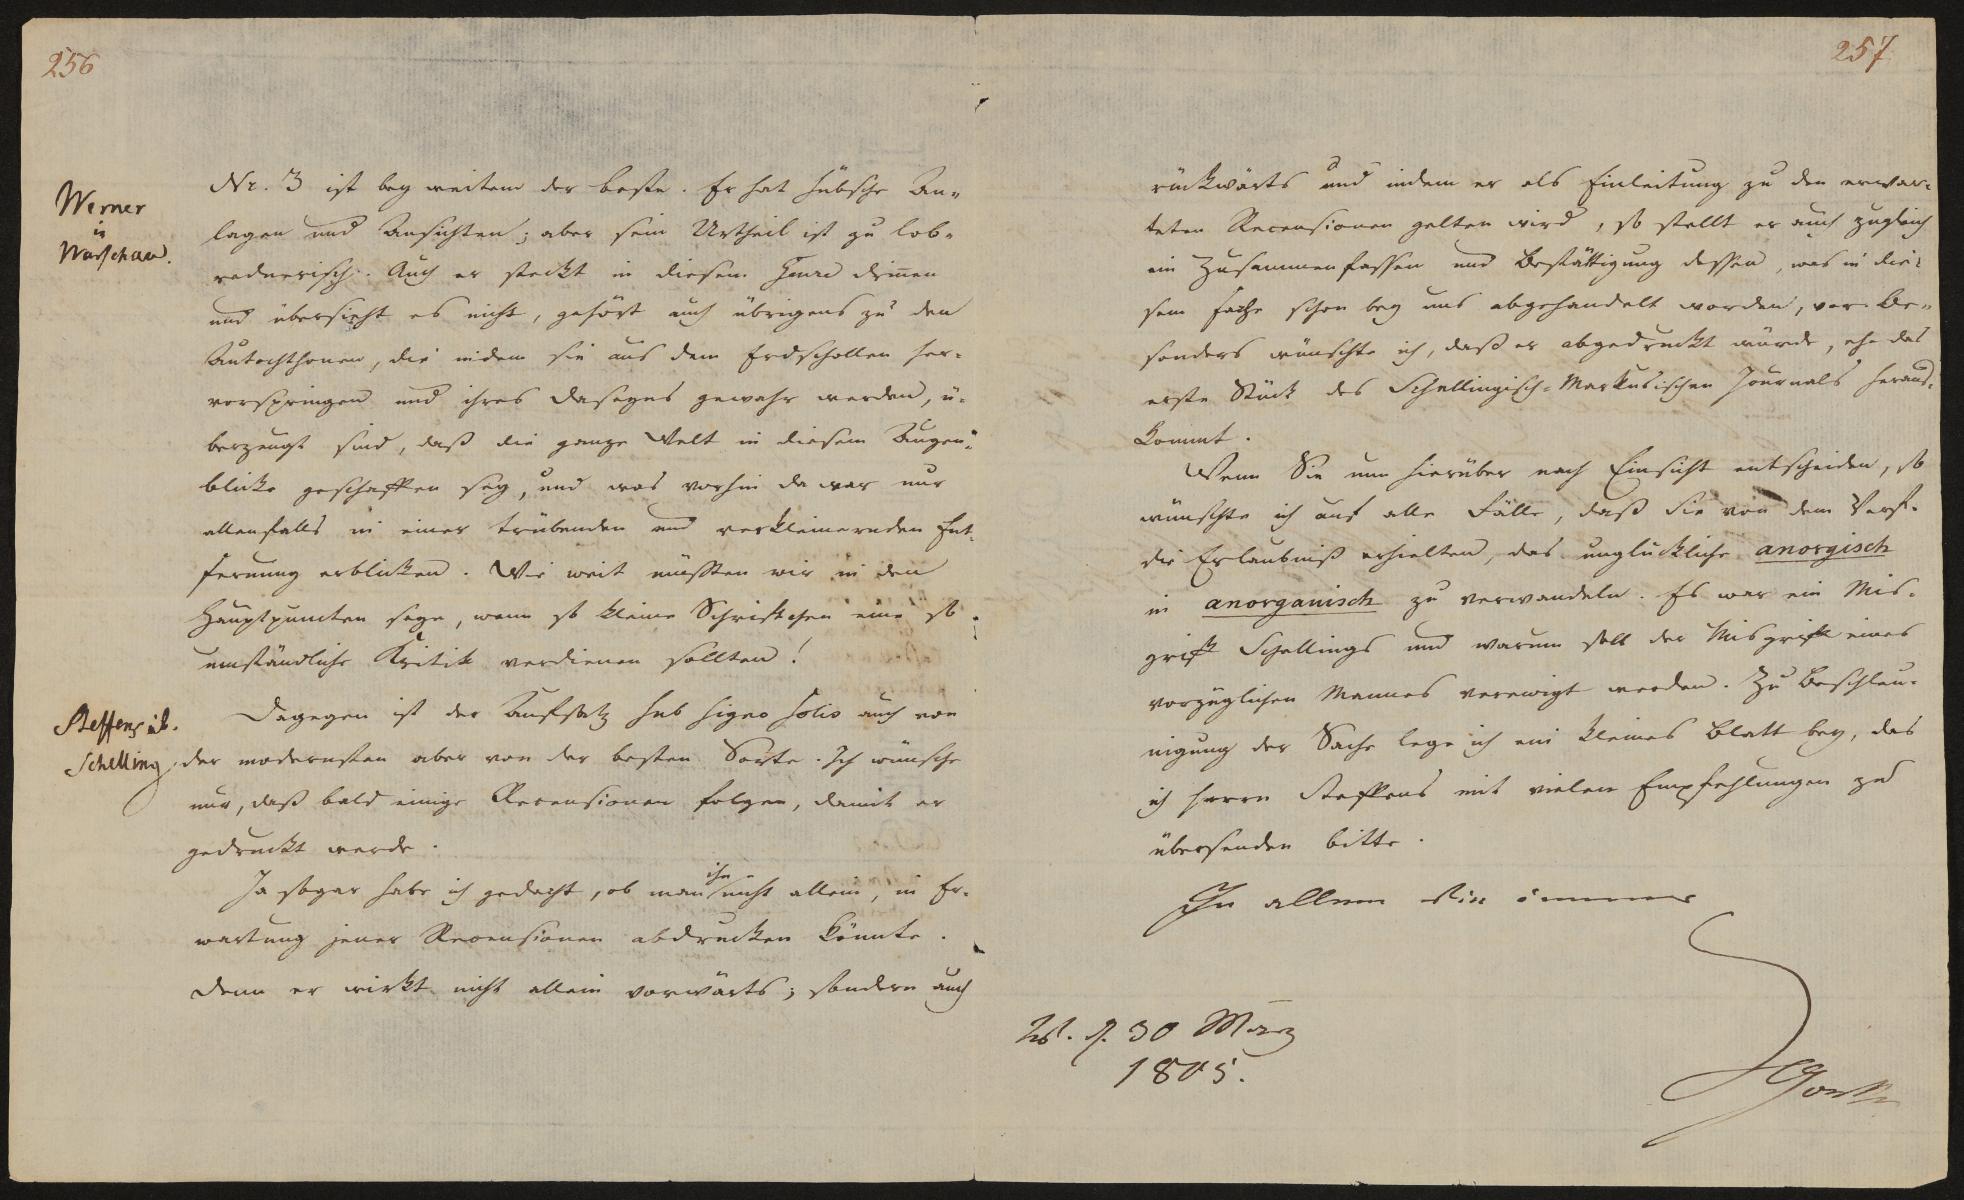 256
Werner
in
Warschau.
Nr. 3 ist bey weitem der beste. Er hat hübsche An-
lagen und Ansichten; aber sein Urtheil ist zu lob-
rednerisch. Auch er steckt in diesem Genre drinnen
und übersieht es nicht, gehört auch übrigens zu den
Autochthonen, die indem sie aus dem Erdschollen her-
vorspringen und ihres Daseyns gewahr werden, ü-
berzeugt sind, daß die ganze Welt in diesem Augen-
blicke geschaffen sey, und was vorhin da war nur
allenfalls in einer trübenden und verkleinernden Ent-
fernung erblicken. Wie weit müßten wir in den
Hauptpuncten seyn, wenn so kleine Schriftchen eine so
umständliche Kritik verdienen sollten!
Steffens üb.
Schelling.
Dagegen ist der Aufsatz sub signo Solis auch von
der modernsten aber von der besten Sorte. Ich wünsche
nur, daß bald einige Recensionen folgen, damit er
gedruckt werde.
Ja sogar habe ich gedacht, ob man ihn nicht allein, in Er-
wartung jener Recensionen abdrucken könnte.
Denn er wirkt nicht allein vorwärts; sondern auch
257
rückwärts und indem er als Einleitung zu den erwar-
teten Recensionen gelten wird, so stellt er auch zugleich
ein Zusammenfassen und Bestättigung dessen, was in die-
sem Fache schon bey uns abgehandelt worden, vor. Be-
sonders wünschte ich, daß er abgedruckt würde, ehe das
erste Stück des Schellingisch-Markusischen Journals heraus-
kommt.
Wenn Sie nun hierüber nach Einsicht entscheiden, so
wünschte ich auf alle Fälle, daß Sie von dem Verf.
die Erlaubniß erhielten, das unglückliche anorgisch
in anorganisch zu verwandeln. Es war ein Mis-
griff Schellings und warum soll der Misgriff eines
vorzüglichen Mannes verewigt werden. Zu Beschleu-
nigung der Sache lege ich ein kleines Blatt bey, das
ich Herrn Steffens mit vielen Empfehlungen zu
übersenden bitte.
In allem Sinn immer
W. d. 30 März
1805.
JWGoethe